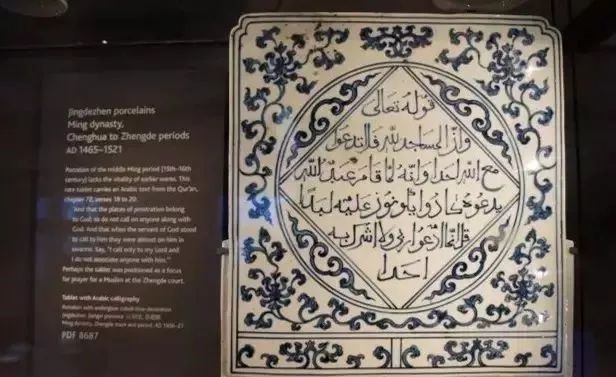 Jingdezhen porcelains
Ming dynasty,
Chenghua to Zhengde periods
AD 1465–1521
Porcelain of the middle Ming period (15th–16th
century) lacks the vitality of earlier wares. This
rare tablet carries an Arabic text from the Qur'an,
chapter 72, verses 18 to 20:
'And that the places of prostration belong
to God; so do not call on anyone along with
God. And that when the servant of God stood
to call to him they were almost on him in
swarms. Say, "I call only to my Lord and
I do not associate anyone with him."'
Perhaps the tablet was positioned as a focus
for prayer for a Muslim at the Zhengde court.
Tablet with Arabic calligraphy
Porcelain with underglaze cobalt-blue decoration
Jingdezhen, Jiangxi province
Ming dynasty, Zhengde mark and period, AD 1506–21
PDF 8687
قوله تعالى
وان المساجد لله فلا تدعوا
مع الله احدا وانه لما قام عبد الله
يدعوه كادوا يكونون عليه لبدا
قل انما ادعوا ربى ولا اشرك به
احدا